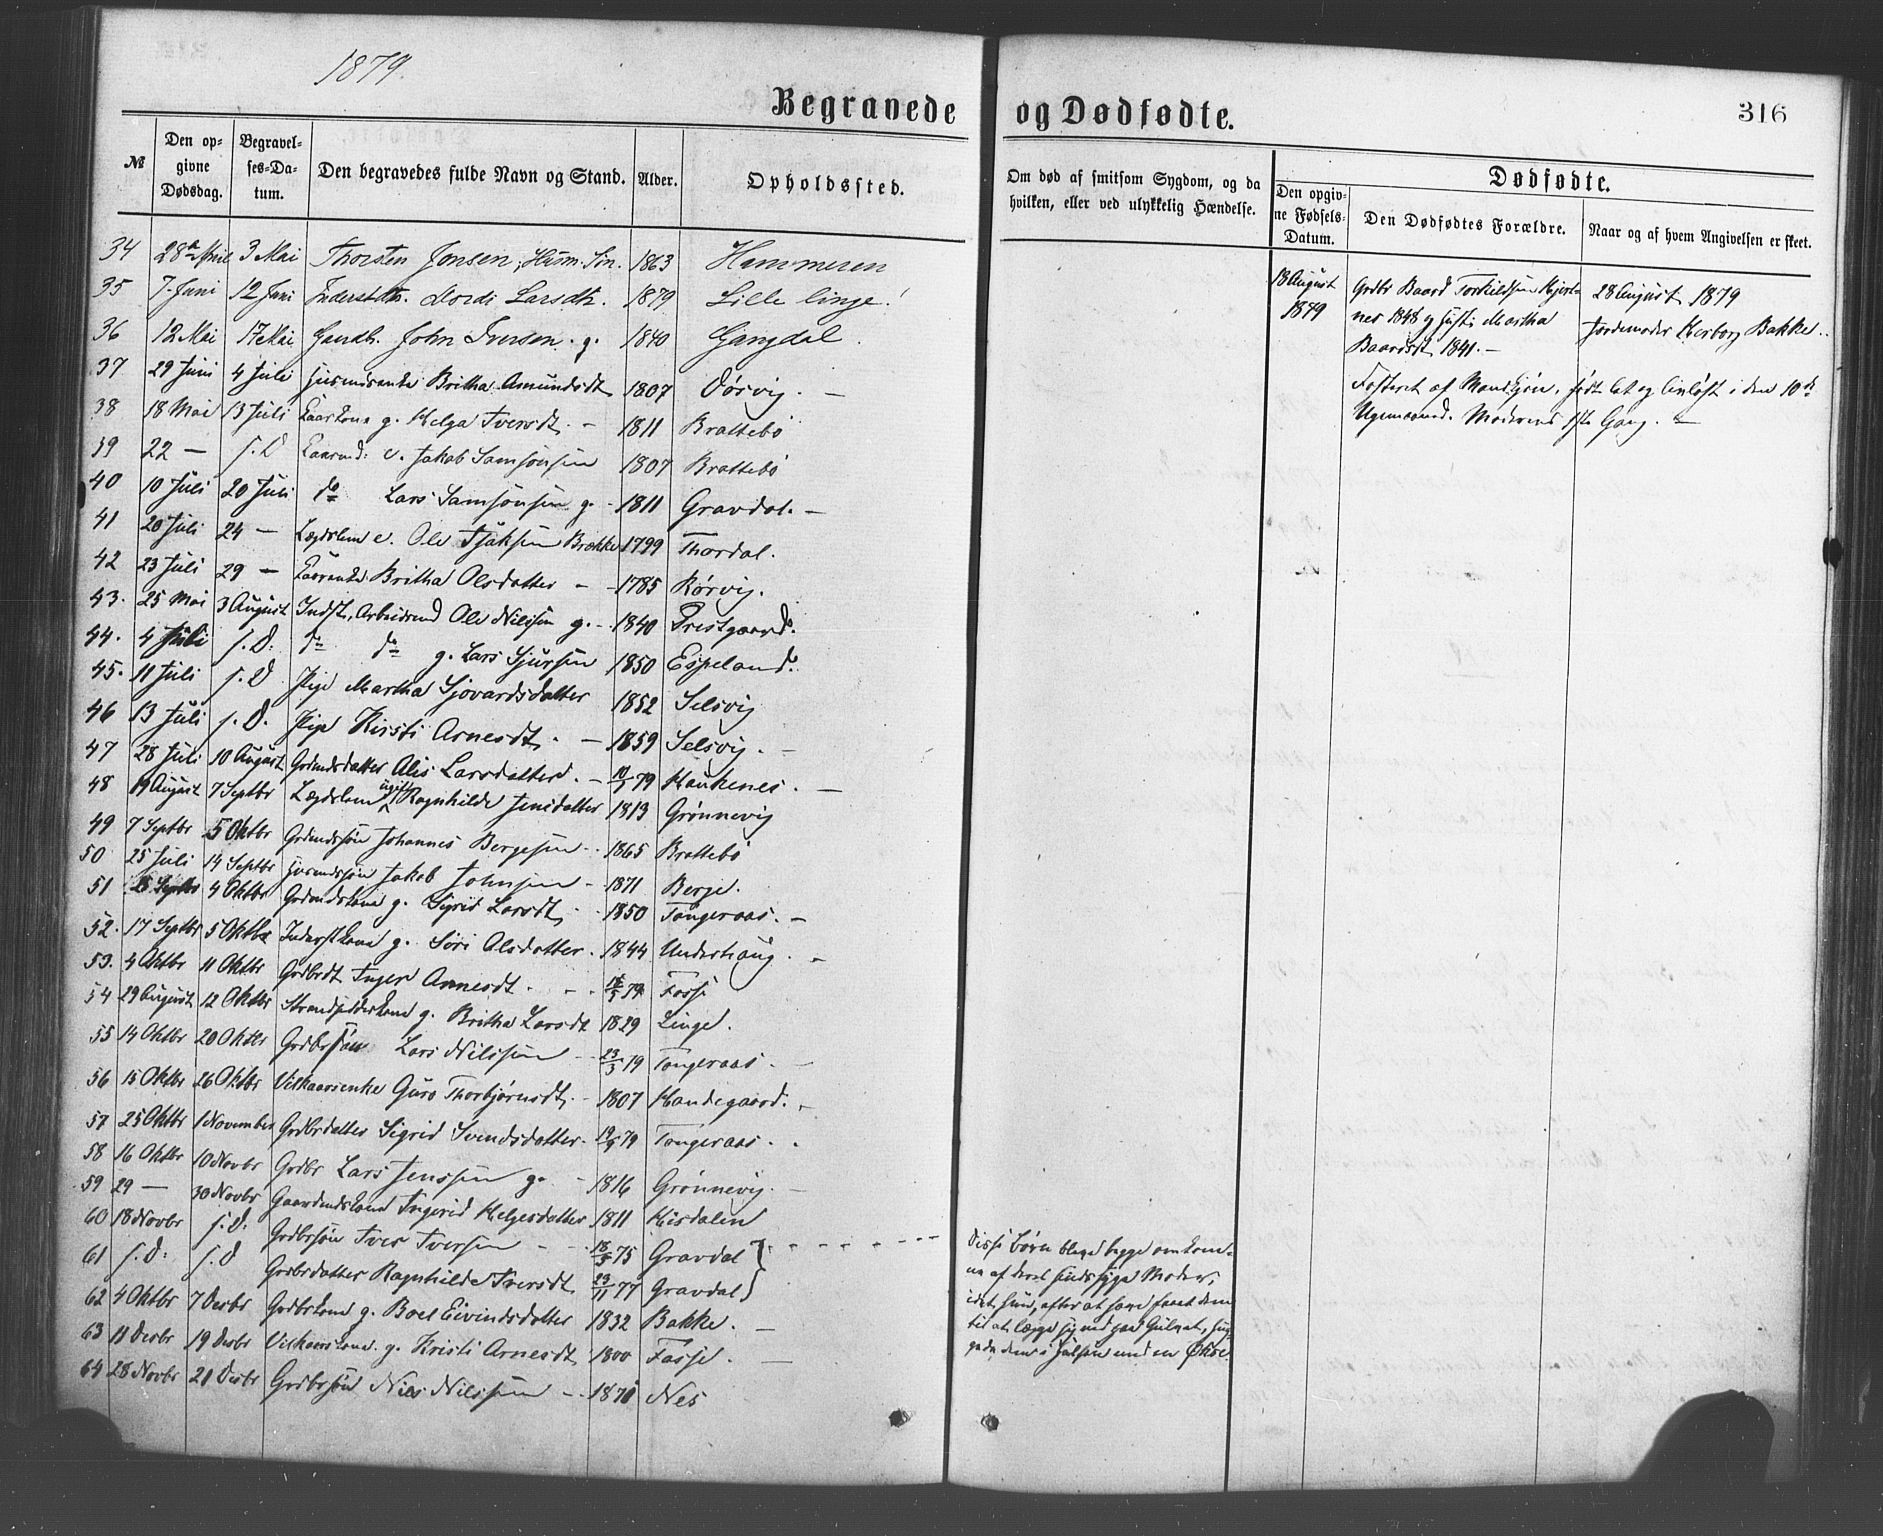 1879.
Begravede og Dødfødte.
316
№
Den opgivne Dødsdag.
Begravelses-Datum.
Den begravedes fulde Navn og Stand.
Alder.
Opholdssted.
Om død af smitsom Sygdom, og da hvilken, eller ved ulykkelig Hændelse.
Dødfødte.
Den opgivne Fødsels-Datum.
Den Dødfødtes Forældre.
Naar og af hvem Angivelsen er skeet.
34 28 April 3 Mai Thorsten Jonsen, Husm. Søn. 1863 Hammeren
35 7 Juni 12 Juni Inderstdtr. Dordi Larsdtr. 1879 Lille linge.
36 12 Mai 17 Mai Gaardb. John Iversen. g. 1840 Gangdal.
37 29 Juni 4 Juli Britha Amundsdt 1807 Vørvig. —
38 18 Mai 13 Juli Kaarkone g. Helga Iversdt. — 1811 Brattebø
39 22 — s. D Kaarmd: e. Jakob Samsonsen 1807 Brattebø
40 10 Juli 20 Juli do Lars Samsonsen g. - 1811 Gravdal. —
41 20 Juli 24 — Lægdslem e. Ole Brække 1799 Thordal.
42 23 Juli 29 — Kaarenke Britha Olsdatter — 1785 Rørvig.
43. 25 Mai 3 August Indst. Arbeidsmd Ole Nilssen g. - 1840 Prestgaard.
44. 4 Juli s. D. do do g. Lars Sjursen 1850 Espeland.
45. 11 Juli s. D Pige Martha Sjovardsdatter 1852 Selsvig
46 13 Juli s. D. Pige Kirsti Arnesdt. — 1859 Selsvig. —
47 28 Juli 10 August Grdmdsdatter Alis Larsdatter. — 79 Haukenes. —
48 19 August 7 Septbr Lægdslem ugift Ragnhilde Jensdatter 1813 Grønnevig
49 7 Septbr 5 Oktbr Grdmdssøn Johannes Bergesen - 1865 Brattebø
50 25 Juli 14 Septbr Jakob Johnsen - 1871 Berge.
51 Septbr 4 Oktbr Grdmdskone g. Sigrid Larsdt. 1850 Tongeraas. —
52. 17 Septbr 5 Oktbr Inderstkone g. Siri Olsdatter. 1844 Underhaug.
53. 4 Oktbr 11 Oktbr Grdbrdt Inger Arnesdt. - - 79 Fosse
54 29 August 12 Oktbr Strandsidderkone g. Britha Larsdt 1829 Linge.
55 14 Oktbr 20 Oktbr Grdbrsøn Lars Nilssen - 23/5 79 Tongeraas. —
56 15 Oktbr 26 Oktbr Vilkaarsenke Guro Thorbjørnsdt. - 1807 Handegaard. -
57 25 Oktbr 1 November Grdbrdatter Sigrid Svendsdatter. 19/9 79 Tongeraas.
58 16 Oktbr 10 Novbr Grdbr Lars Jenssen g. - 1816 Grønnevig. —
59 29 — 30 Novbr Gaardmdskone Ingerid Helgesdatter 1811 Kisdalen
60 18 Novbr s. D. Grdbrsøn Iver Iversen - - 75 Gravdal
61 s. D. s. D Grdbrdatter Ragnhilde Iversdt 23/11 77 Gravdal
62 4 Oktbr 7 Desbr Grdbrkone g. Boel Eivindsdatter 1832 Bakke. —
63 11 Desbr 19 Desbr Vilkaarskone g. Kristi Arnesdt 1800 Fosse. —
64 28 Novbr 21 Desbr Grdbrsøn Nils Nilssen - - 1871 Nes
Disse Børn bleve begge omkom-
ne af deres sindssyge Moder,
idet hun, efter at have faaet dem
til at lægge sig ned paa Gulvet, hug-
gede dem i Halsen med en Økse.
18 August
1879
Grdbr Baard Torkildsen Hjert-
nes 1848 og Hustr. Martha
Baardsdt 1841. —
28 August 1879
Jordemoder Herborg Bakke.
Fosteret af Mandkjøn, født let og livløst i den 10de
Moderens 1ste Gang. —